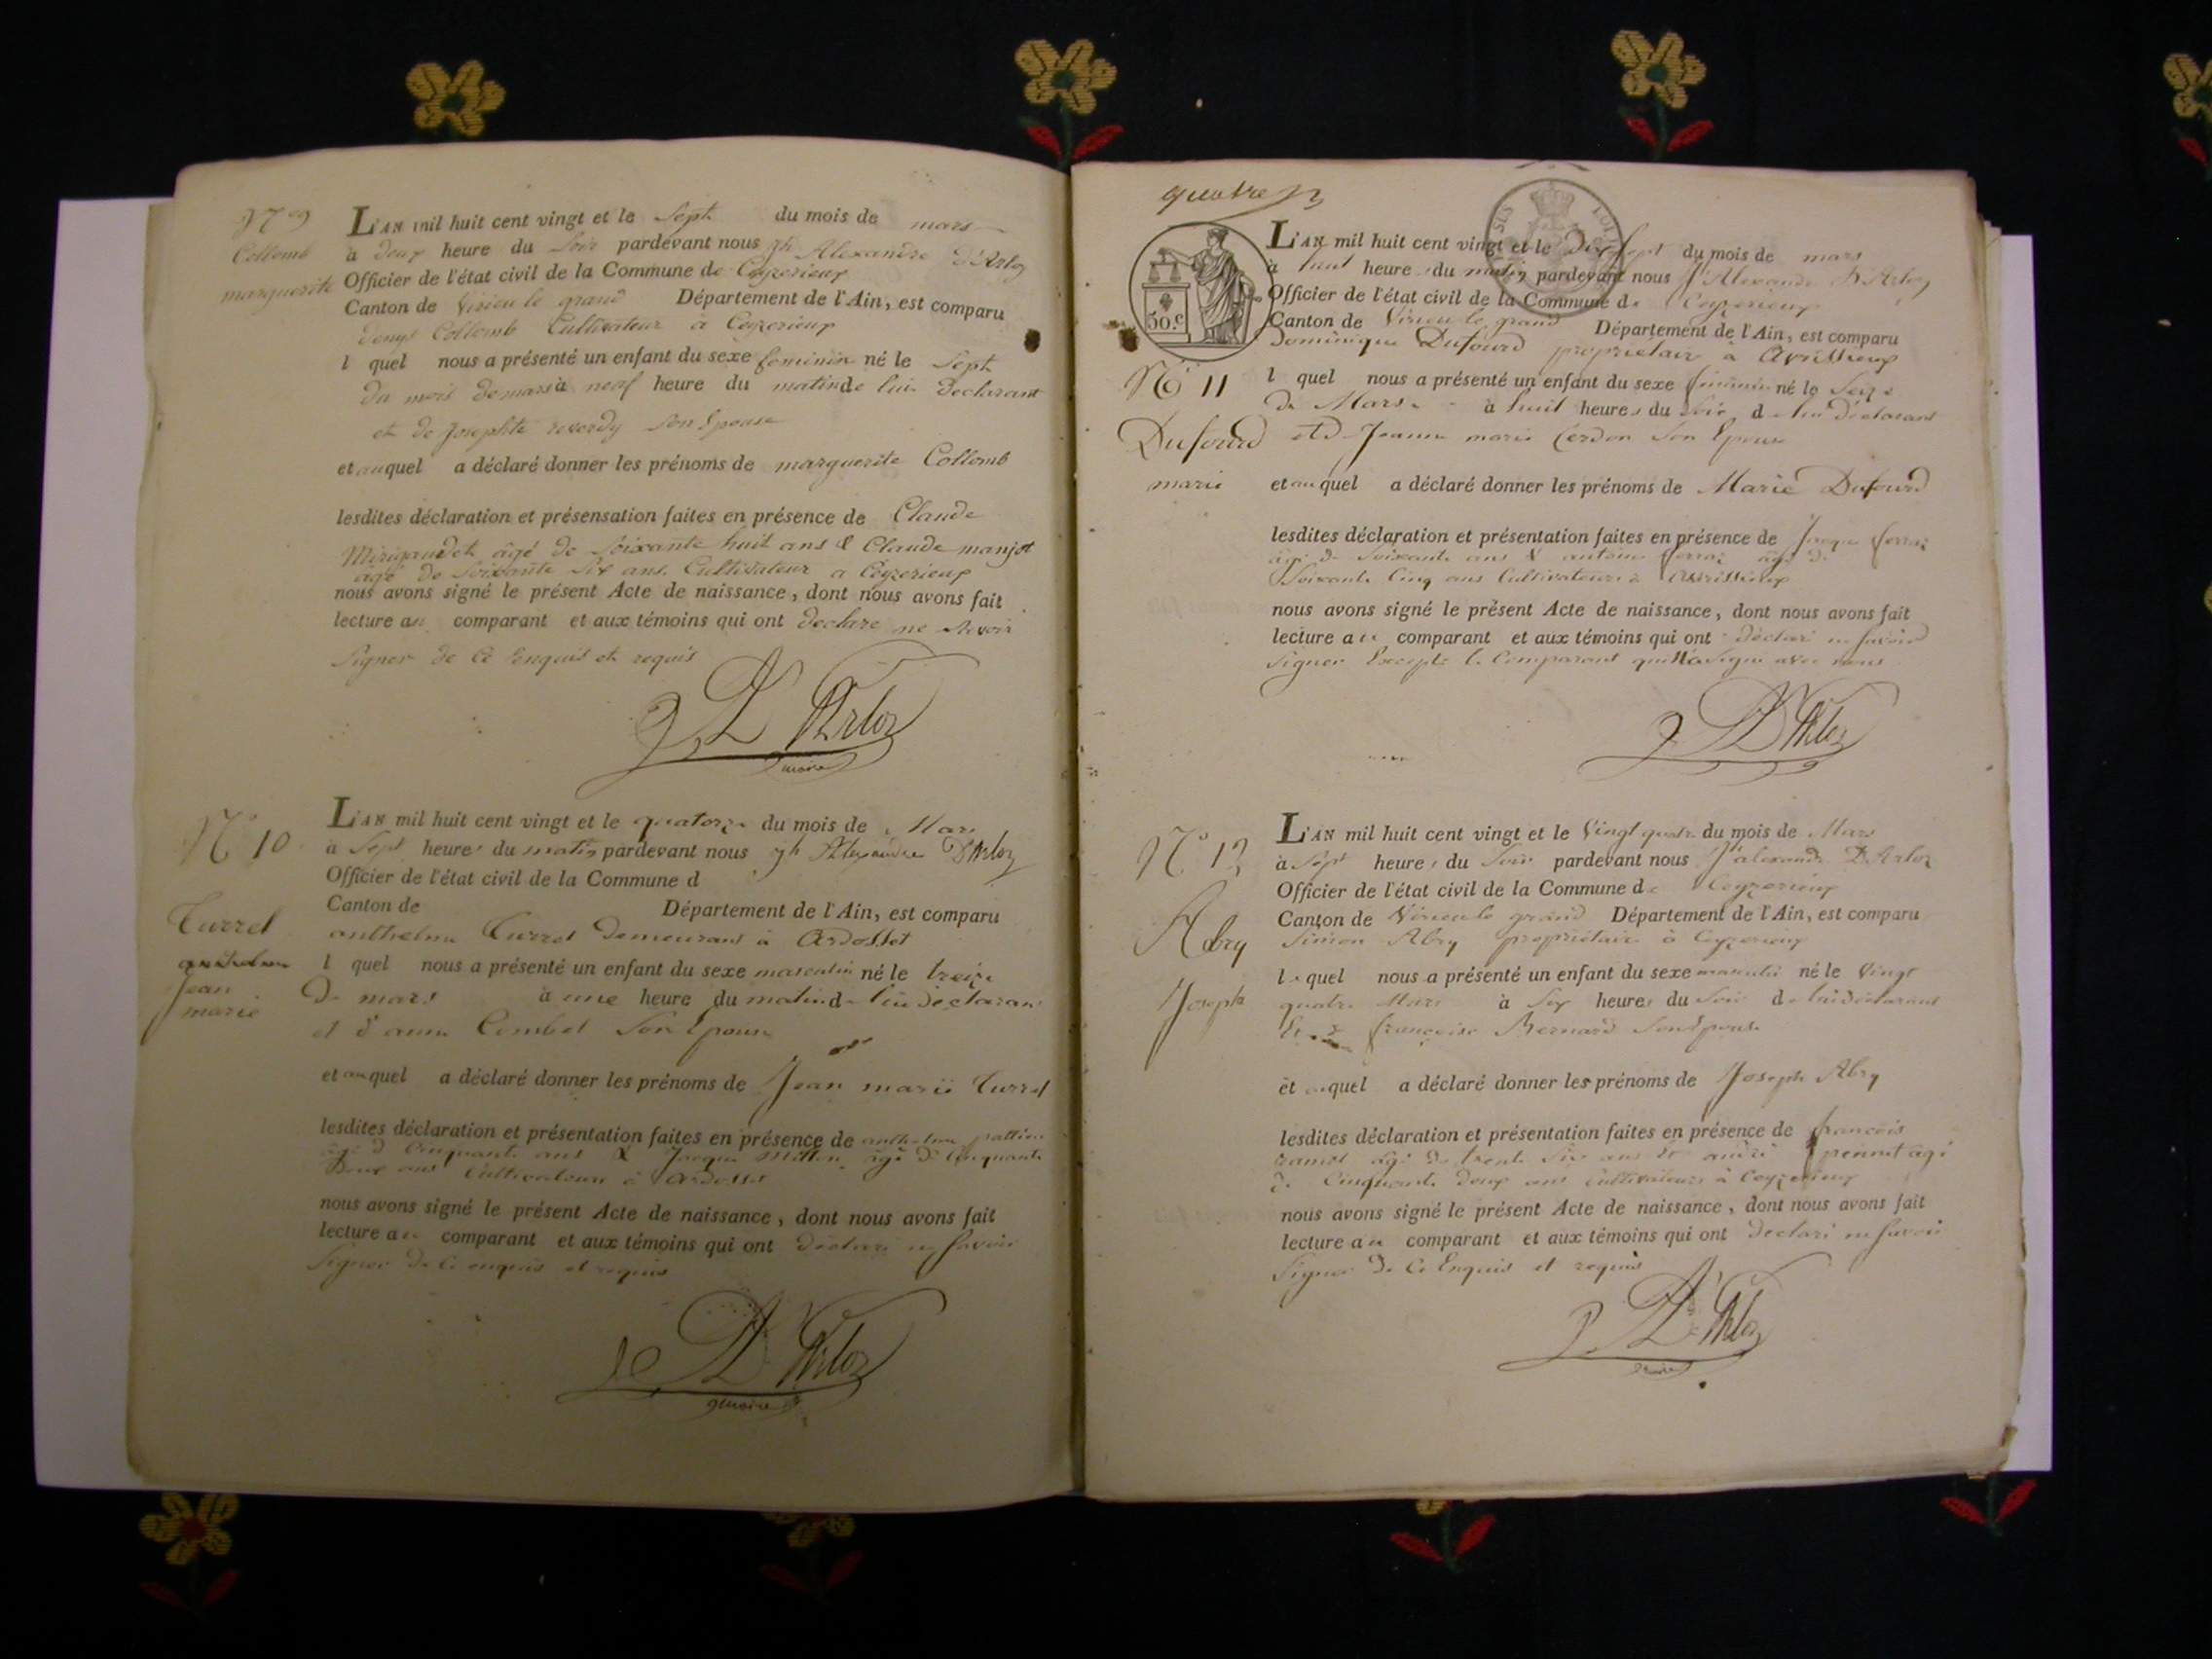 N° 9
Collomb
marguerite
L'AN mil huit cent vingt et le Sept du mois de mars
à deux heure du Soir pardevant nous jh Alexandre D'Arloz
Officier de l'état civil de la Commune de Ceyzerieux
Canton de Virieu le grand Département de l'Ain, est comparu
denys Collomb Cultivateur à Ceyzerieux
l quel nous a présenté un enfant du sexe feminin né le Sept
du mois de mars à neuf heure du matin de lui declarant
et de Josephte reverdy Son Epouse
et auquel a déclaré donner les prénoms de marguerite Collomb
lesdites déclaration et présensation faites en présence de Claude
âgé de Soixante huit ans & Claude manjot
âgé de Soixante Six ans. Cultivateur a Ceyzerieux
nous avons signé le présent Acte de naissance, dont nous avons fait
lecture au comparant et aux témoins qui ont declare ne Savoir
Signer de Ce Enquis et requis
J A D'Arloz
maire
N° 10
Currel
anthelme
Jean
marie
L'AN mil huit cent vingt et le quatorze du mois de Mars
à Sept heures du matin pardevant nous jh Alexandre D'Arloz
Officier de l'état civil de la Commune d
Canton de Département de l'Ain, est comparu
anthelme Currel demeurant à Ardosset
l quel nous a présenté un enfant du sexe masculin né le treize
De mars à une heure du matin de lui declarant
et d'anne Combet Son Epouse
et auquel a déclaré donner les prénoms de Jean marie Currel
lesdites déclaration et présentation faites en présence de anthelme
âgé d Cinquante ans & Jacque âgé de Cinquante
Deux ans Cultivateurs à Ardosset
nous avons signé le présent Acte de naissance, dont nous avons fait
lecture au comparant et aux témoins qui ont déclaré ne Savoir
Signer de Ce enquis et requis
J A D'Arloz
maire
quatre
50.c
N° 11
Dufourd
marie
L'AN mil huit cent vingt et le Dix Sept du mois de mars
à huit heure du matin pardevant nous Jh Alexandre D'Arloz
Officier de l'état civil de la Commune de Ceyzerieux
Canton de Virieu le grand Département de l'Ain, est comparu
Dominique Dufourd propriétaire à Avrissieux
l quel nous a présenté un enfant du sexe feminin né le Seize
De Mars à huit heures du Soir de lui déclarant
et d Jeanne marie Cerdon Son Epouse
et auquel a déclaré donner les prénoms de Marie Dufourd
lesdites déclaration et présentation faites en présence de Jacque ferraz
âgé de Soixante ans & antoine ferraz âgé de
Soixante Cinq ans Cultivateurs à Avrissieux
nous avons signé le présent Acte de naissance, dont nous avons fait
lecture au comparant et aux témoins qui ont déclaré ne Savoir
Signer Excepté le Comparant qui a Signé avec nous
J A D'Arloz
N° 12
Abry
Joseph
L'AN mil huit cent vingt et le Vingt quatre du mois de Mars
à Sept heure du Soir pardevant nous Jh alexandre D'Arloz
Officier de l'état civil de la Commune de Ceyzerieux
Canton de Virieu le grand Département de l'Ain, est comparu
Simon Abry propriétaire à Ceyzerieux
le quel nous a présenté un enfant du sexe masculin né le Vingt
quatre Mars à Six heures du Soir de lui déclarant
Et de françoise Bernard Son Epouse
et auquel a déclaré donner les prénoms de Joseph Abry
lesdites déclaration et présentation faites en présence de françois
âgé de trente Six ans & andré âgé
de Cinquante deux ans Cultivateurs à Ceyzerieux
nous avons signé le présent Acte de naissance, dont nous avons fait
lecture au comparant et aux témoins qui ont declaré ne Savoir
Signer De Ce Enquis et requis
J A D'Arloz
maire